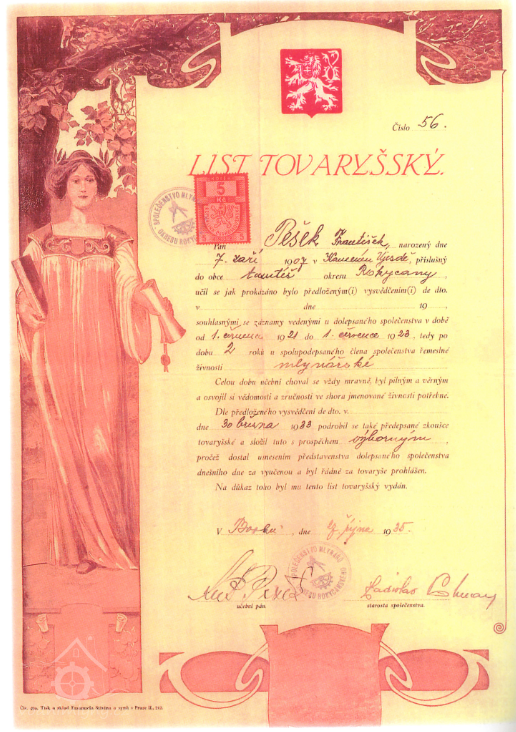 Číslo 56.
LIST TOVARYŠSKÝ.
SPOLEČENSTVO MLYNÁŘŮ
5
Kč
Pan Pešek František, narozený dne
7. září 1907 v Kamenném Újezdě, příslušný
do obce tamtéž okresu Rokycany
učil se jak prokázáno bylo předloženým(i) vysvědčením(i) de dto.
v dne 19
souhlasným se záznamy vedenými u dolepsaného společenstva v době
od 1. července 1921 do 1. července 1923, tedy po
dobu 2 roků u spolupodepsaného člena společenstva řemeslné
živnosti mlynářské
Celou dobu učební choval se vždy mravně, byl pilným a věrným
a osvojil si vědomosti a zručnosti ve shora jmenované živnosti potřebné.
Dle předloženého vysvědčení de dto. v
dne 30 března 1933 podrobil se také předepsané zkoušce
tovaryšské a složil tuto s prospěchem výborným
pročež dostal umesením představenstva dolepsaného společenstva
dnešního dne za vyučena a byl řádně za tovaryše prohlášen.
Na důkaz toho byl mu tento list tovaryšský vydán.
V dne října 1935.
Ladislav
učební pán. starosta společenstva